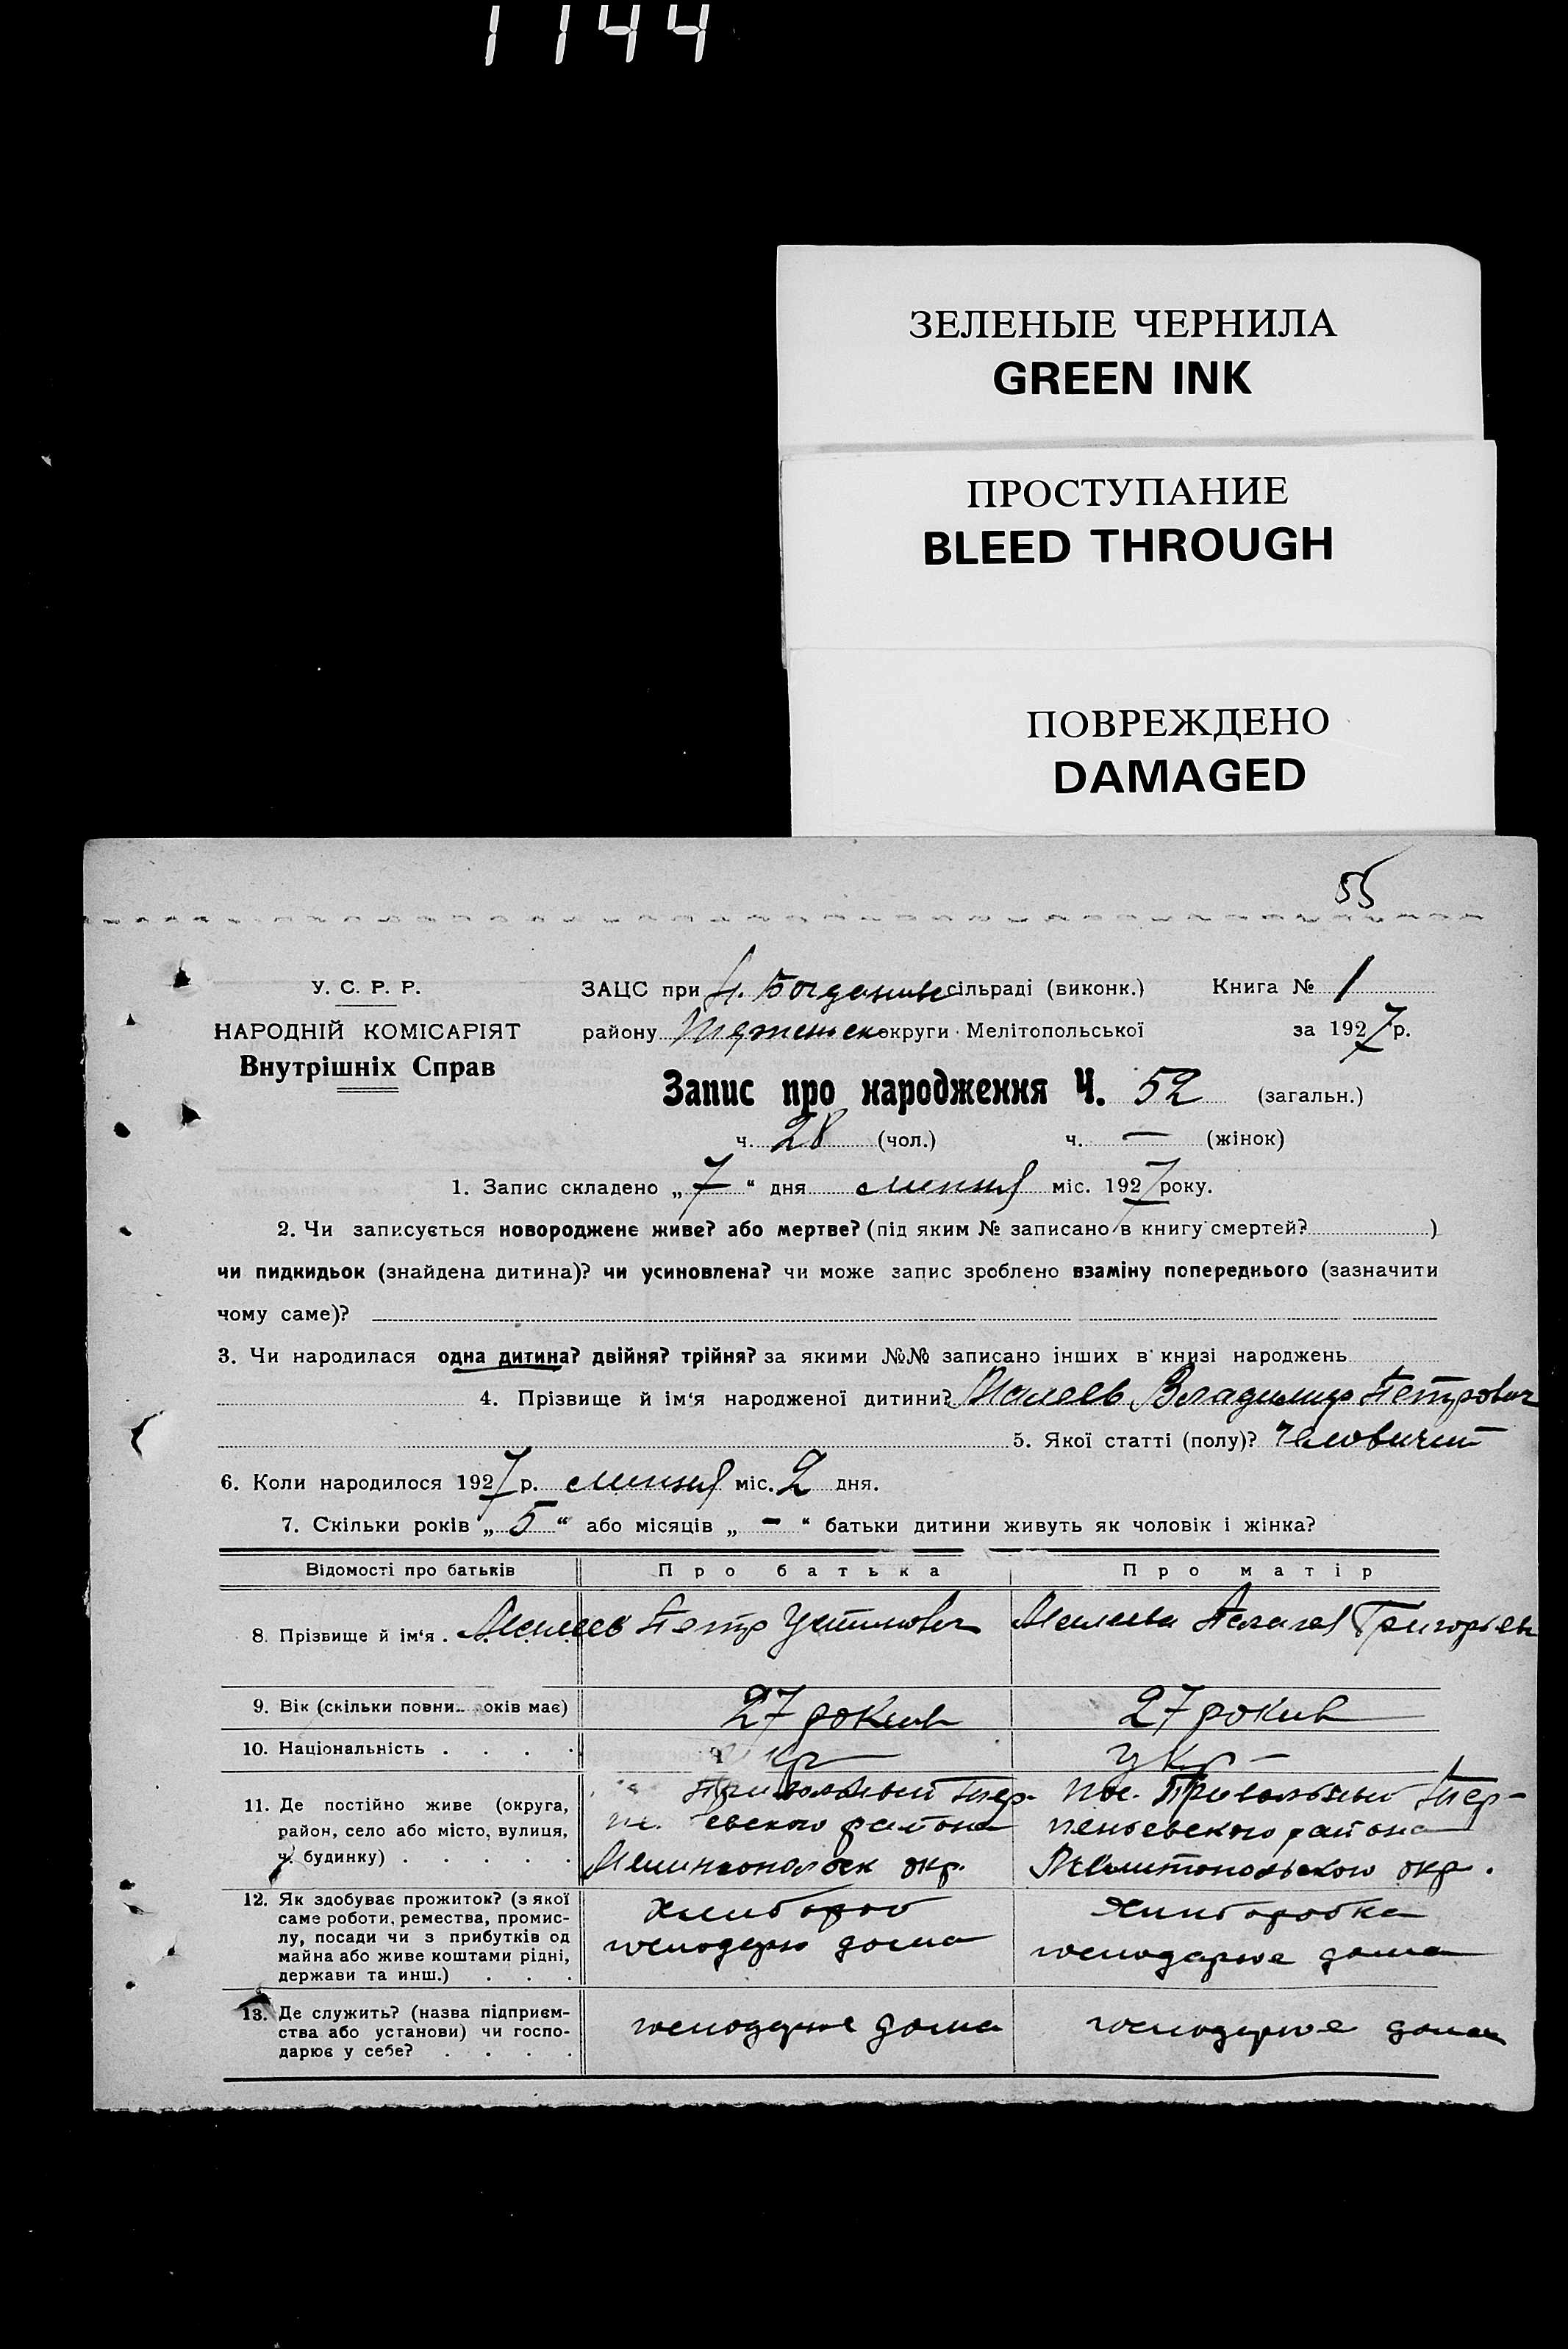 1144
ЗЕЛЕНЫЕ ЧЕРНИЛА
GREEN INK
ПРОСТУПАНИЕ
BLEED THROUGH
ПОВРЕЖДЕНО
DAMAGED
55
У. С. Р. Р.
НАРОДНІЙ КОМІСАРІЯТ
Внутрішніх Справ
ЗАЦС при сільраді (виконк.) Книга № 1
району округи Мелітопольської за 1927 р.
Запис про народження Ч. 52 (загальн.)
ч. 28 (чол.) ч. — (жінок)
1. Запис складено „ 7 “ дня липня міс. 1927 року.
2. Чи записується новороджене живе? або мертве? (під яким № записано в книгу смертей? )
чи пидкидьок (знайдена дитина)? чи усиновлена? чи може запис зроблено взаміну попереднього (зазначити
чому саме)?
3. Чи народилася одна дитина? двійня? трійня? за якими №№ записано інших в книзі народжень
4. Прізвище й ім'я народженої дитини? Владимир Петрович
5. Якої статті (полу)? Чоловичий
6. Коли народилося 1927 р. липня міс. 2 дня.
7. Скільки років „ 5 “ або місяців „ - “ батьки дитини живуть як чоловік і жінка?
Відомості про батьків Про батька Про матір
8. Прізвище й ім'я . Петр Устимович Григорьев
9. Вік (скільки повни.. оків має) 27 рокив 27 рокив
10. Національність . . . . укр
11. Де постійно живе (округа,
район, село або місто, вулиця,
ч. будинку) . . . . .
Привольный Тер-
евского района
окр.
пос. Привольный Тер-
пеньевского района
Мелитопольского окр.
12. Як здобуває прожиток? (з якої
саме роботи, ремества, промис-
лу, посади чи з прибутків од
майна або живе коштами рідні,
держави та инш.) . . .
Хлибороб
дома
Хлиборобка
господарює дома
13. Де служить? (назва підприєм-
ства або установи) чи госпо-
дарює у себе? . . . .
господарює дома
господарює дома